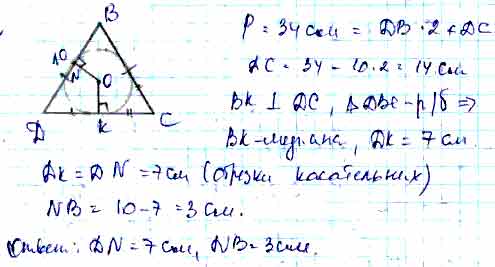 B
10
N
O
D
K
C
P = 34 см = DB · 2 + DC
DC = 34 - 10·2 = 14 см
BK ⊥ DC, ΔDBC - р/б =>
BK - медиана, DK = 7 см
DK = DN = 7 см (отрезки касательных)
NB = 10 - 7 = 3 см.
Ответ: DN = 7 см, NB = 3 см.